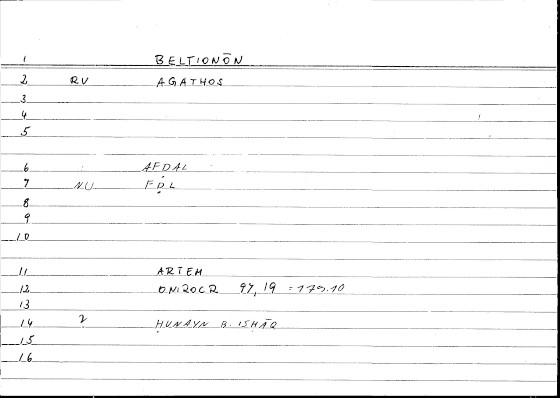 1 BELTIONŌN
2 RV AGATHOS
3
4
5
6 AFḌAL
7 NU FḌL
8
9
10
11 ARTEM
12 ONIROCR 97,19 = 179.10
13
14 2 ḤUNAYN B. ISḤĀQ
15
16